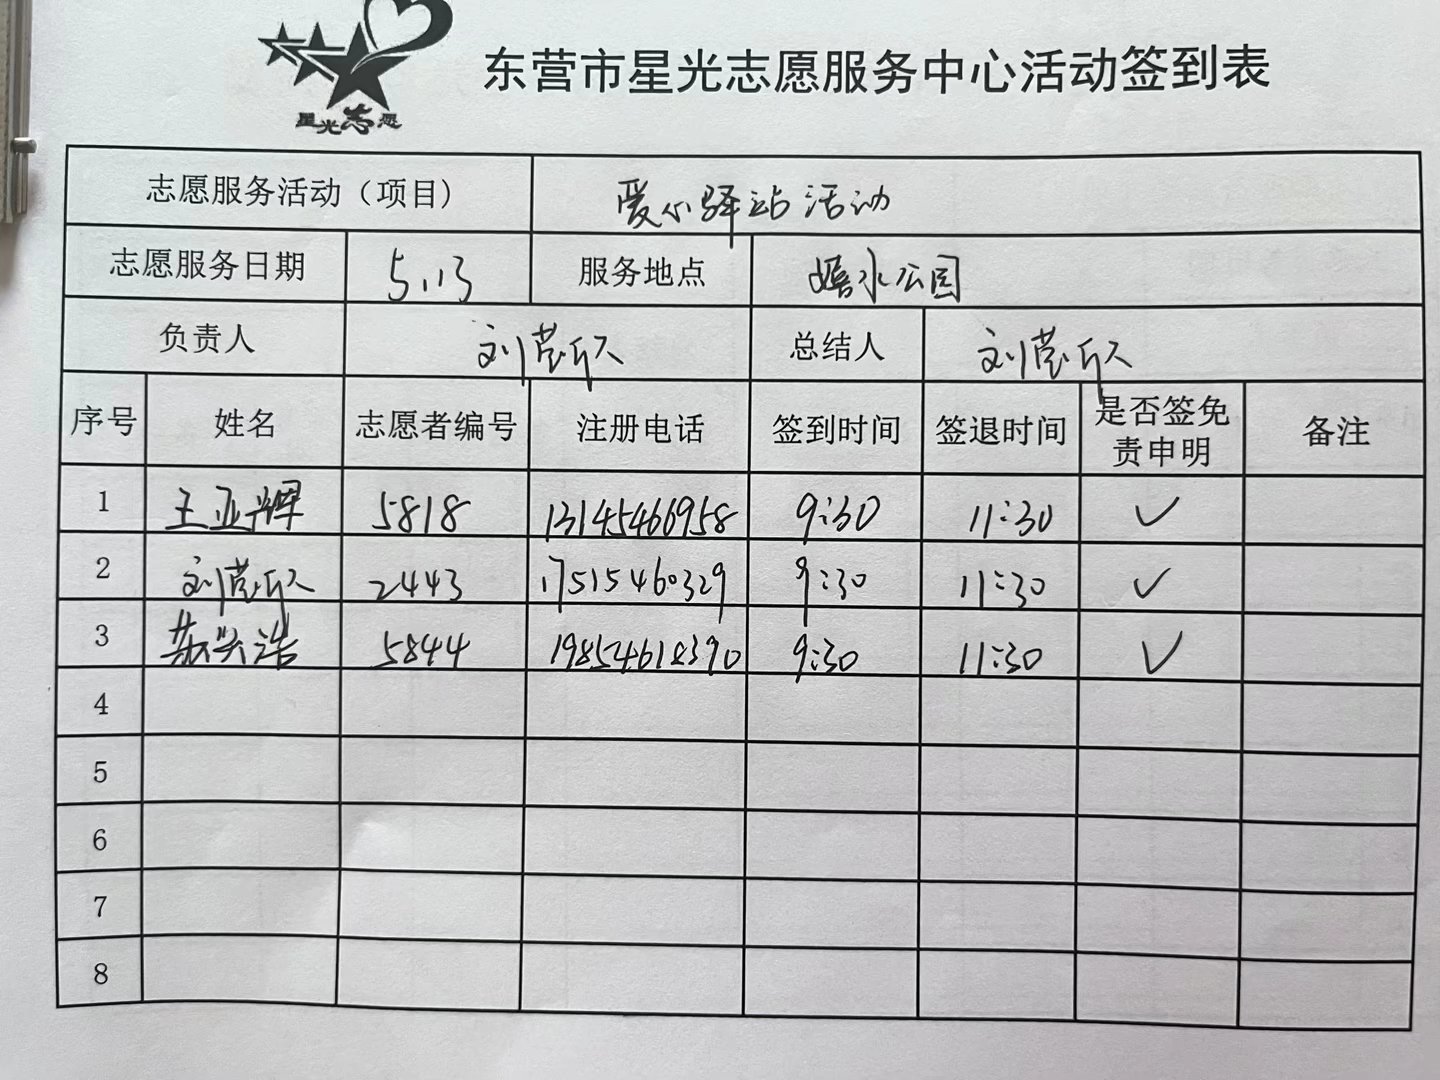 星光志愿
东营市星光志愿服务中心活动签到表
志愿服务活动（项目） 爱心驿站活动
志愿服务日期 5.13 服务地点 嬉水公园
负责人 刘莹欣 总结人 刘莹欣
序号 姓名 志愿者编号 注册电话 签到时间 签退时间 是否签免责申明 备注
1 王亚辉 5818 13145466958 9:30 11:30 ✓
2 刘莹欣 2443 17515460329 9:30 11:30 ✓
3 苏兴浩 5844 19854618390 9:30 11:30 ✓
4
5
6
7
8